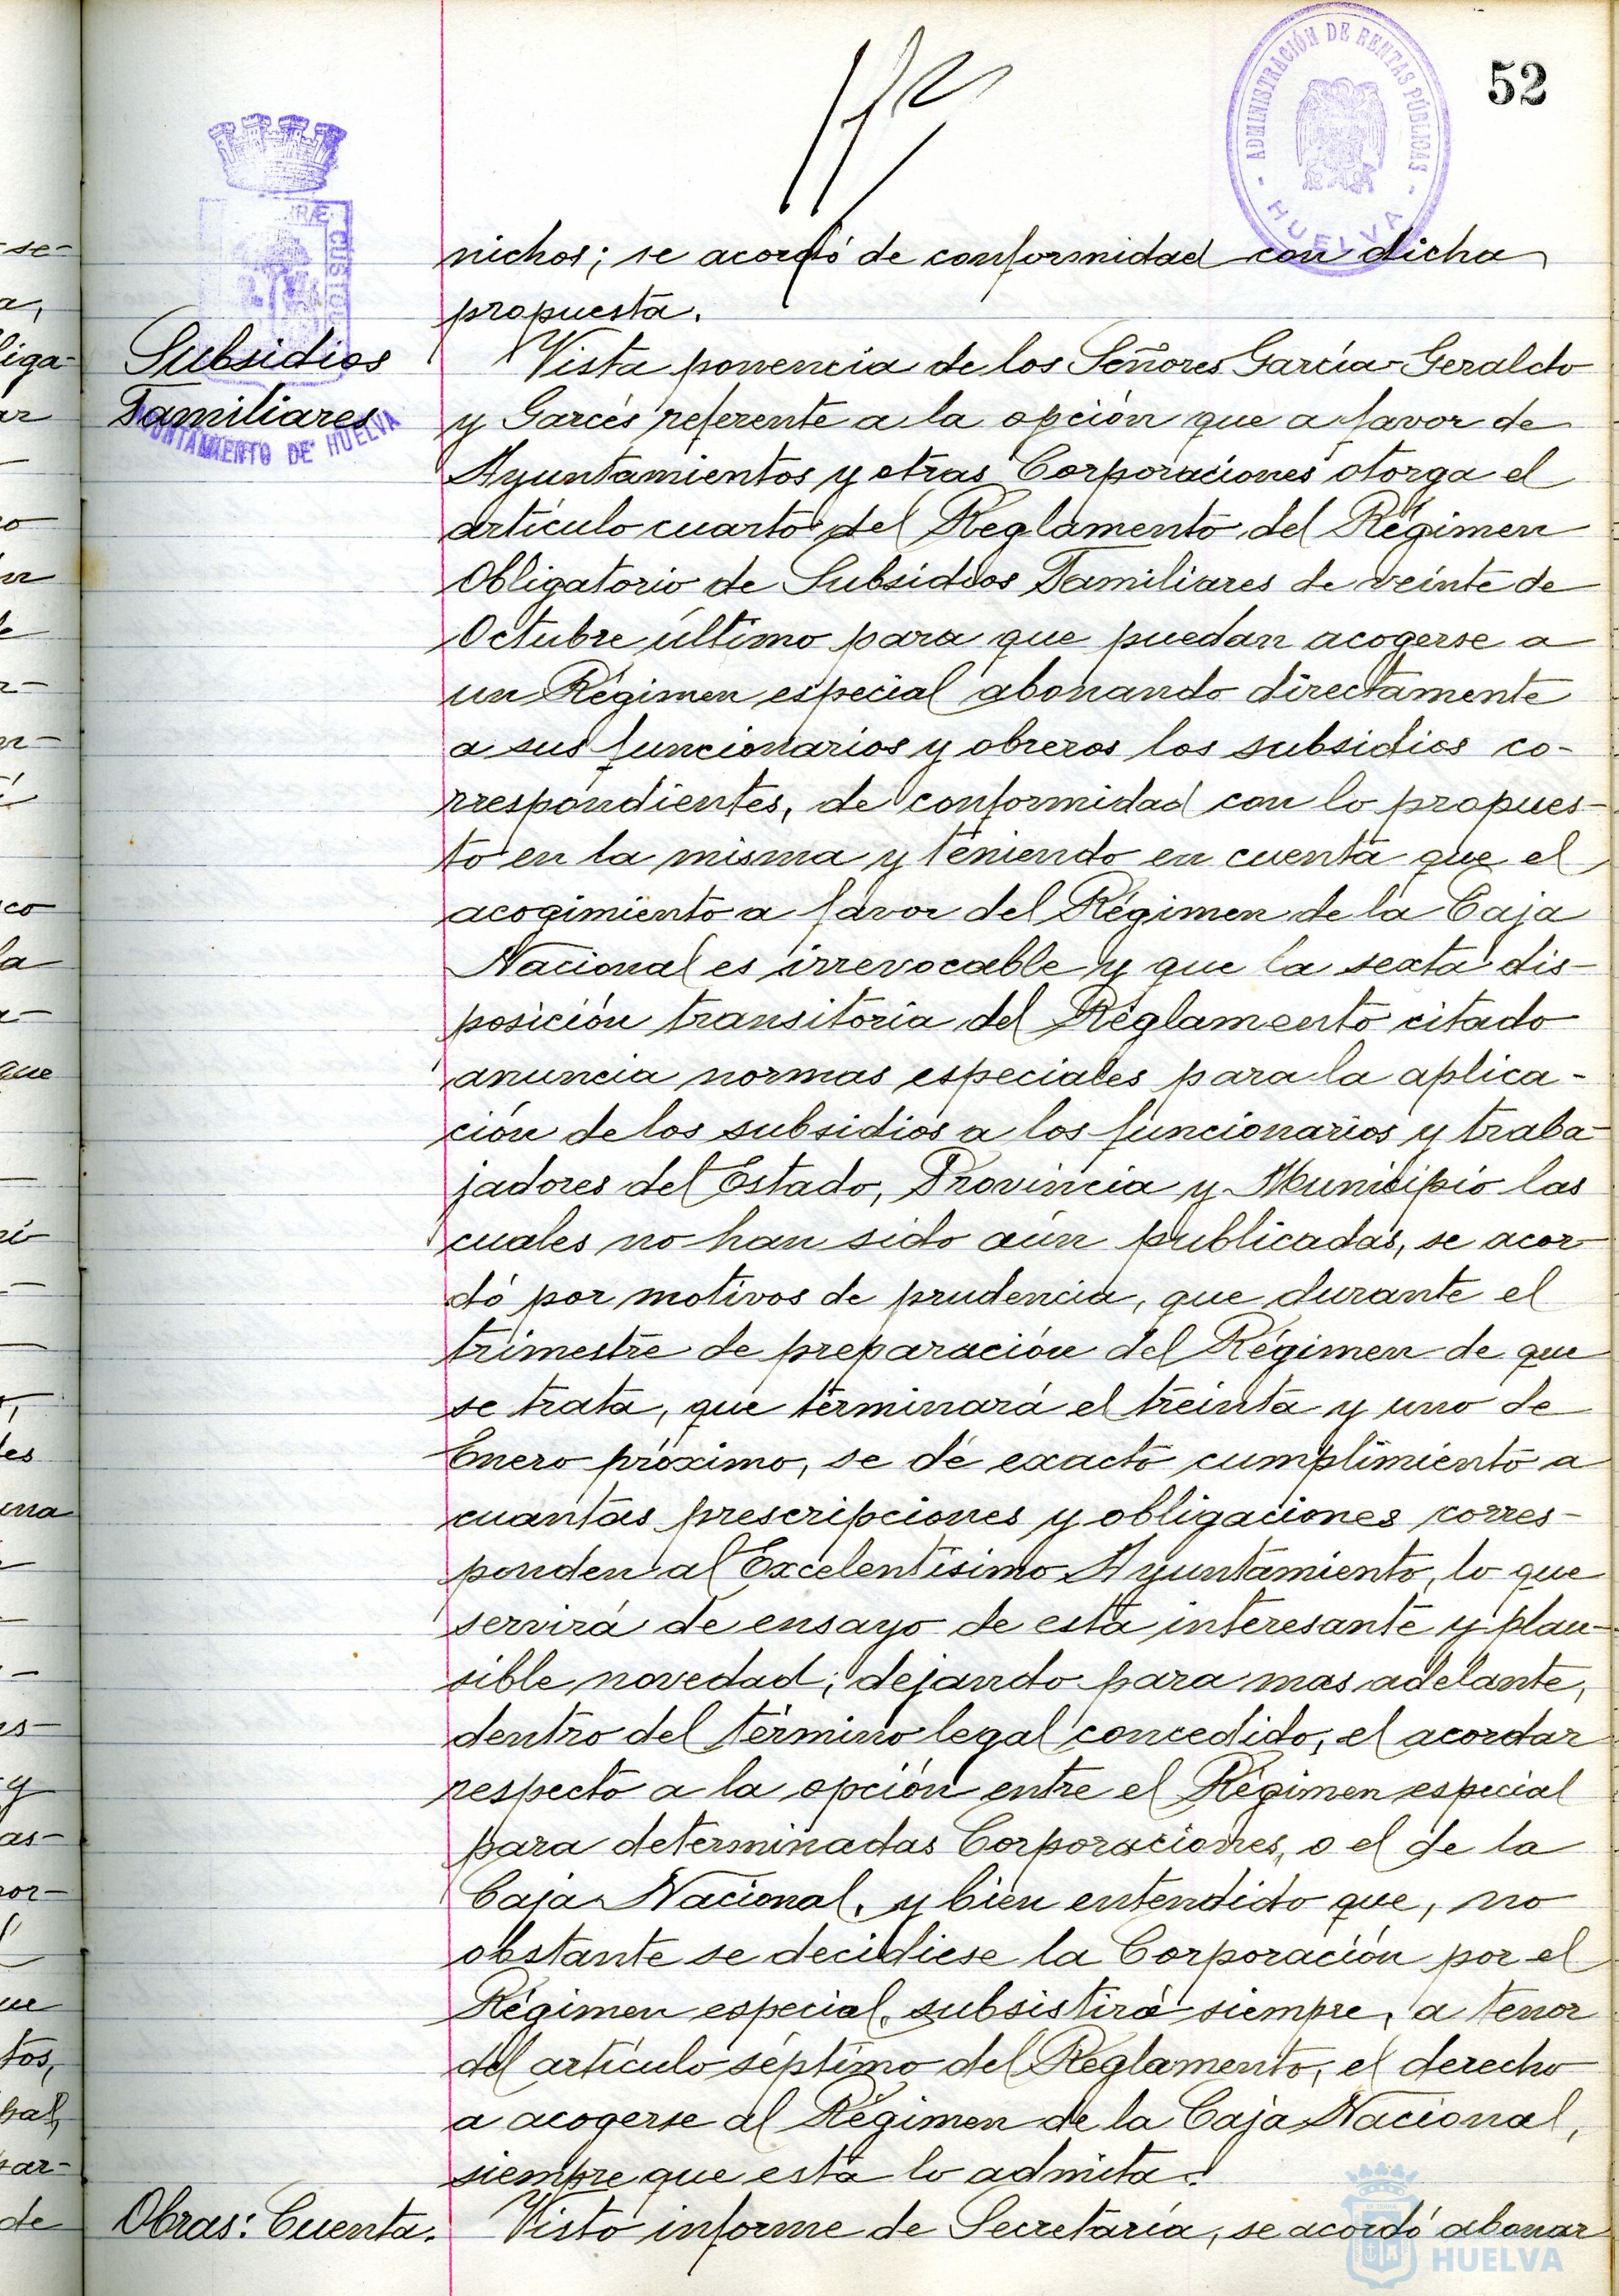 52
ADMINISTRACIÓN DE RENTAS PÚBLICAS
- HUELVA -
CUSTODIA
AYUNTAMIENTO DE HUELVA
nichos; se acordó de conformidad con dicha
propuesta.
Subsidios
Familiares
Vista ponencia de los Señores García-Geraldo
y Garcés referente a la opción que a favor de
Ayuntamientos y otras Corporaciones otorga el
artículo cuarto del Reglamento del Régimen
Obligatorio de Subsidios Familiares de veinte de
Octubre último para que puedan acogerse a
un Régimen especial abonando directamente
a sus funcionarios y obreros los subsidios co-
rrespondientes, de conformidad con lo propues-
to en la misma y teniendo en cuenta que el
acogimiento a favor del Régimen de la Caja
Nacional es irrevocable y que la sexta dis-
posición transitoria del Reglamento citado
anuncia normas especiales para la aplica-
ción de los subsidios a los funcionarios y traba-
jadores del Estado, Provincia y Municipio las
cuales no han sido aún publicadas, se acor-
dó por motivos de prudencia, que durante el
trimestre de preparación del Régimen de que
se trata, que terminará el treinta y uno de
Enero próximo, se dé exacto cumplimiento a
cuantas prescripciones y obligaciones corres-
ponden al Excelentísimo Ayuntamiento, lo que
servirá de ensayo de esta interesante y plau-
sible novedad; dejando para mas adelante,
dentro del término legal concedido, el acordar
respecto a la opción entre el Régimen especial
para determinadas Corporaciones, o el de la
Caja Nacional, y bien entendido que, no
obstante se decidiese la Corporación por el
Régimen especial, subsistirá siempre, a tenor
del artículo séptimo del Reglamento, el derecho
a acogerse al Régimen de la Caja Nacional,
siempre que esta lo admita.
Obras: Cuenta.
Visto informe de Secretaría, se acordó abonar
HUELVA